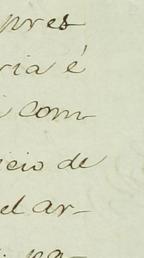 pres
ria é
com-
icio de
el ar-
pa-